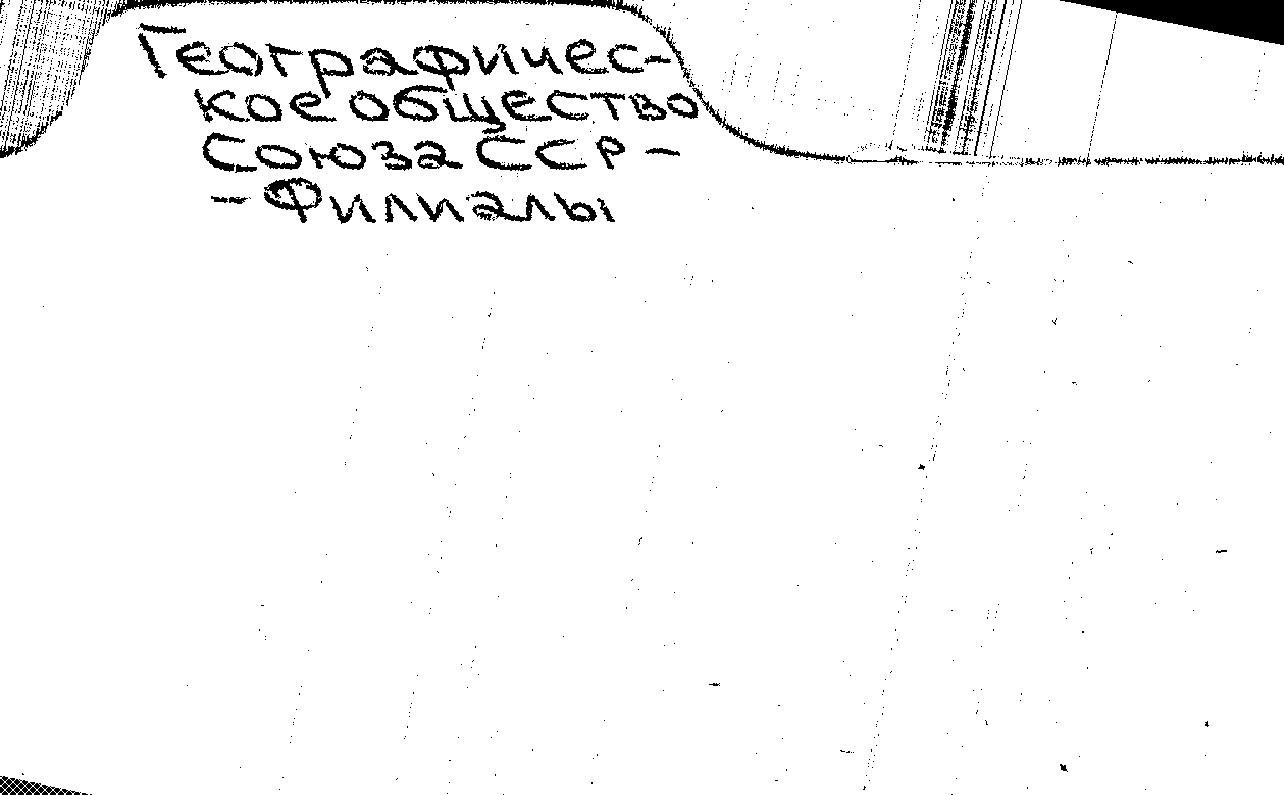 Географичес-
кое общество
Союза ССР -
- Филиалы